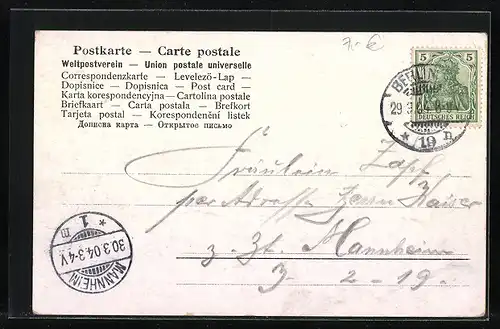 Postkarte — Carte postale
Weltpostverein — Union postale universelle
Correspondenzkarte — Levelező-Lap —
Dopisnice — Dopisnica — Post card —
Karta korespondencyjna — Cartolina postale
Briefkaart — Carta postala — Brefkort
Tarjeta postal — Korespondenční listek
Дописна карта — Открытое письмо
5 5
DEUTSCHES REICH
BERLIN
29 3
* 19 n.
Fräulein Zapf
per Adresse Herrn Kaiser
z. Zt. Mannheim
J- 2 - 19.
* 1 m
30.3.04.3-4.V.
MANNHEIM